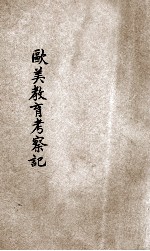 歐美教育考察記